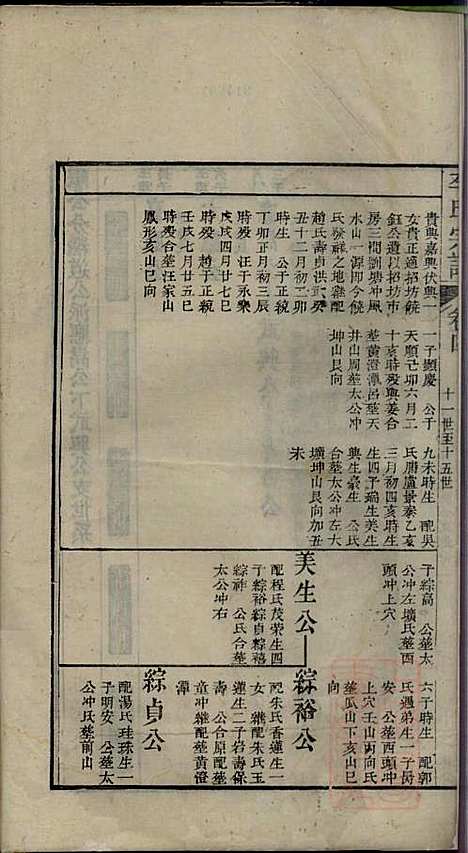 卷四
十一世至十五世
貴興嘉興伏興一
女貴正適招坊饒
鈺公遺以招坊市
房三間劉塘冲風
水山一源即今饒
氏發祥之地雜配
趙氏壽貞洪武癸
丑十二月初二卯
時生 公于正統
丁卯正月初三辰
時歿 汪于永樂
戊戌四月廿七巳
時歿 趙于正統
壬戌七月廿五巳
時歿合塟汪家山
鳳形亥山巳向
一子顯慶 公于
天順己卯六月二
十亥時歿與姜合
塟黃澄潭呂塟天
井山周塟太公冲
坤山艮向
九未時生 配吳
氏腊盧景泰乙亥
三月初四亥時生
生四子瑞生美生
興生豪生 公氏
合塟太公冲左大
壙坤山艮向加丑
未
子綜高 公塟太
公冲左壙氏塟西
頭冲上穴
美生公
配程氏茂榮生四
子綜裕綜貞綜禧
綜祥 公氏合塟
太公冲右
六子時生 配郭
氏遇弟生一子長
安 公塟西頭冲
上穴壬山丙向氏
塟瓜山下亥山巳
向
綜裕公
配朱氏香蓮生一
女 雜配朱氏玉
蓮生二子岩壽保
壽 公合原配塟
童冲雜配塟黃澄
潭
綜貞公
配湯氏珪珠生一
子明安 公塟太
公冲氏塟前山